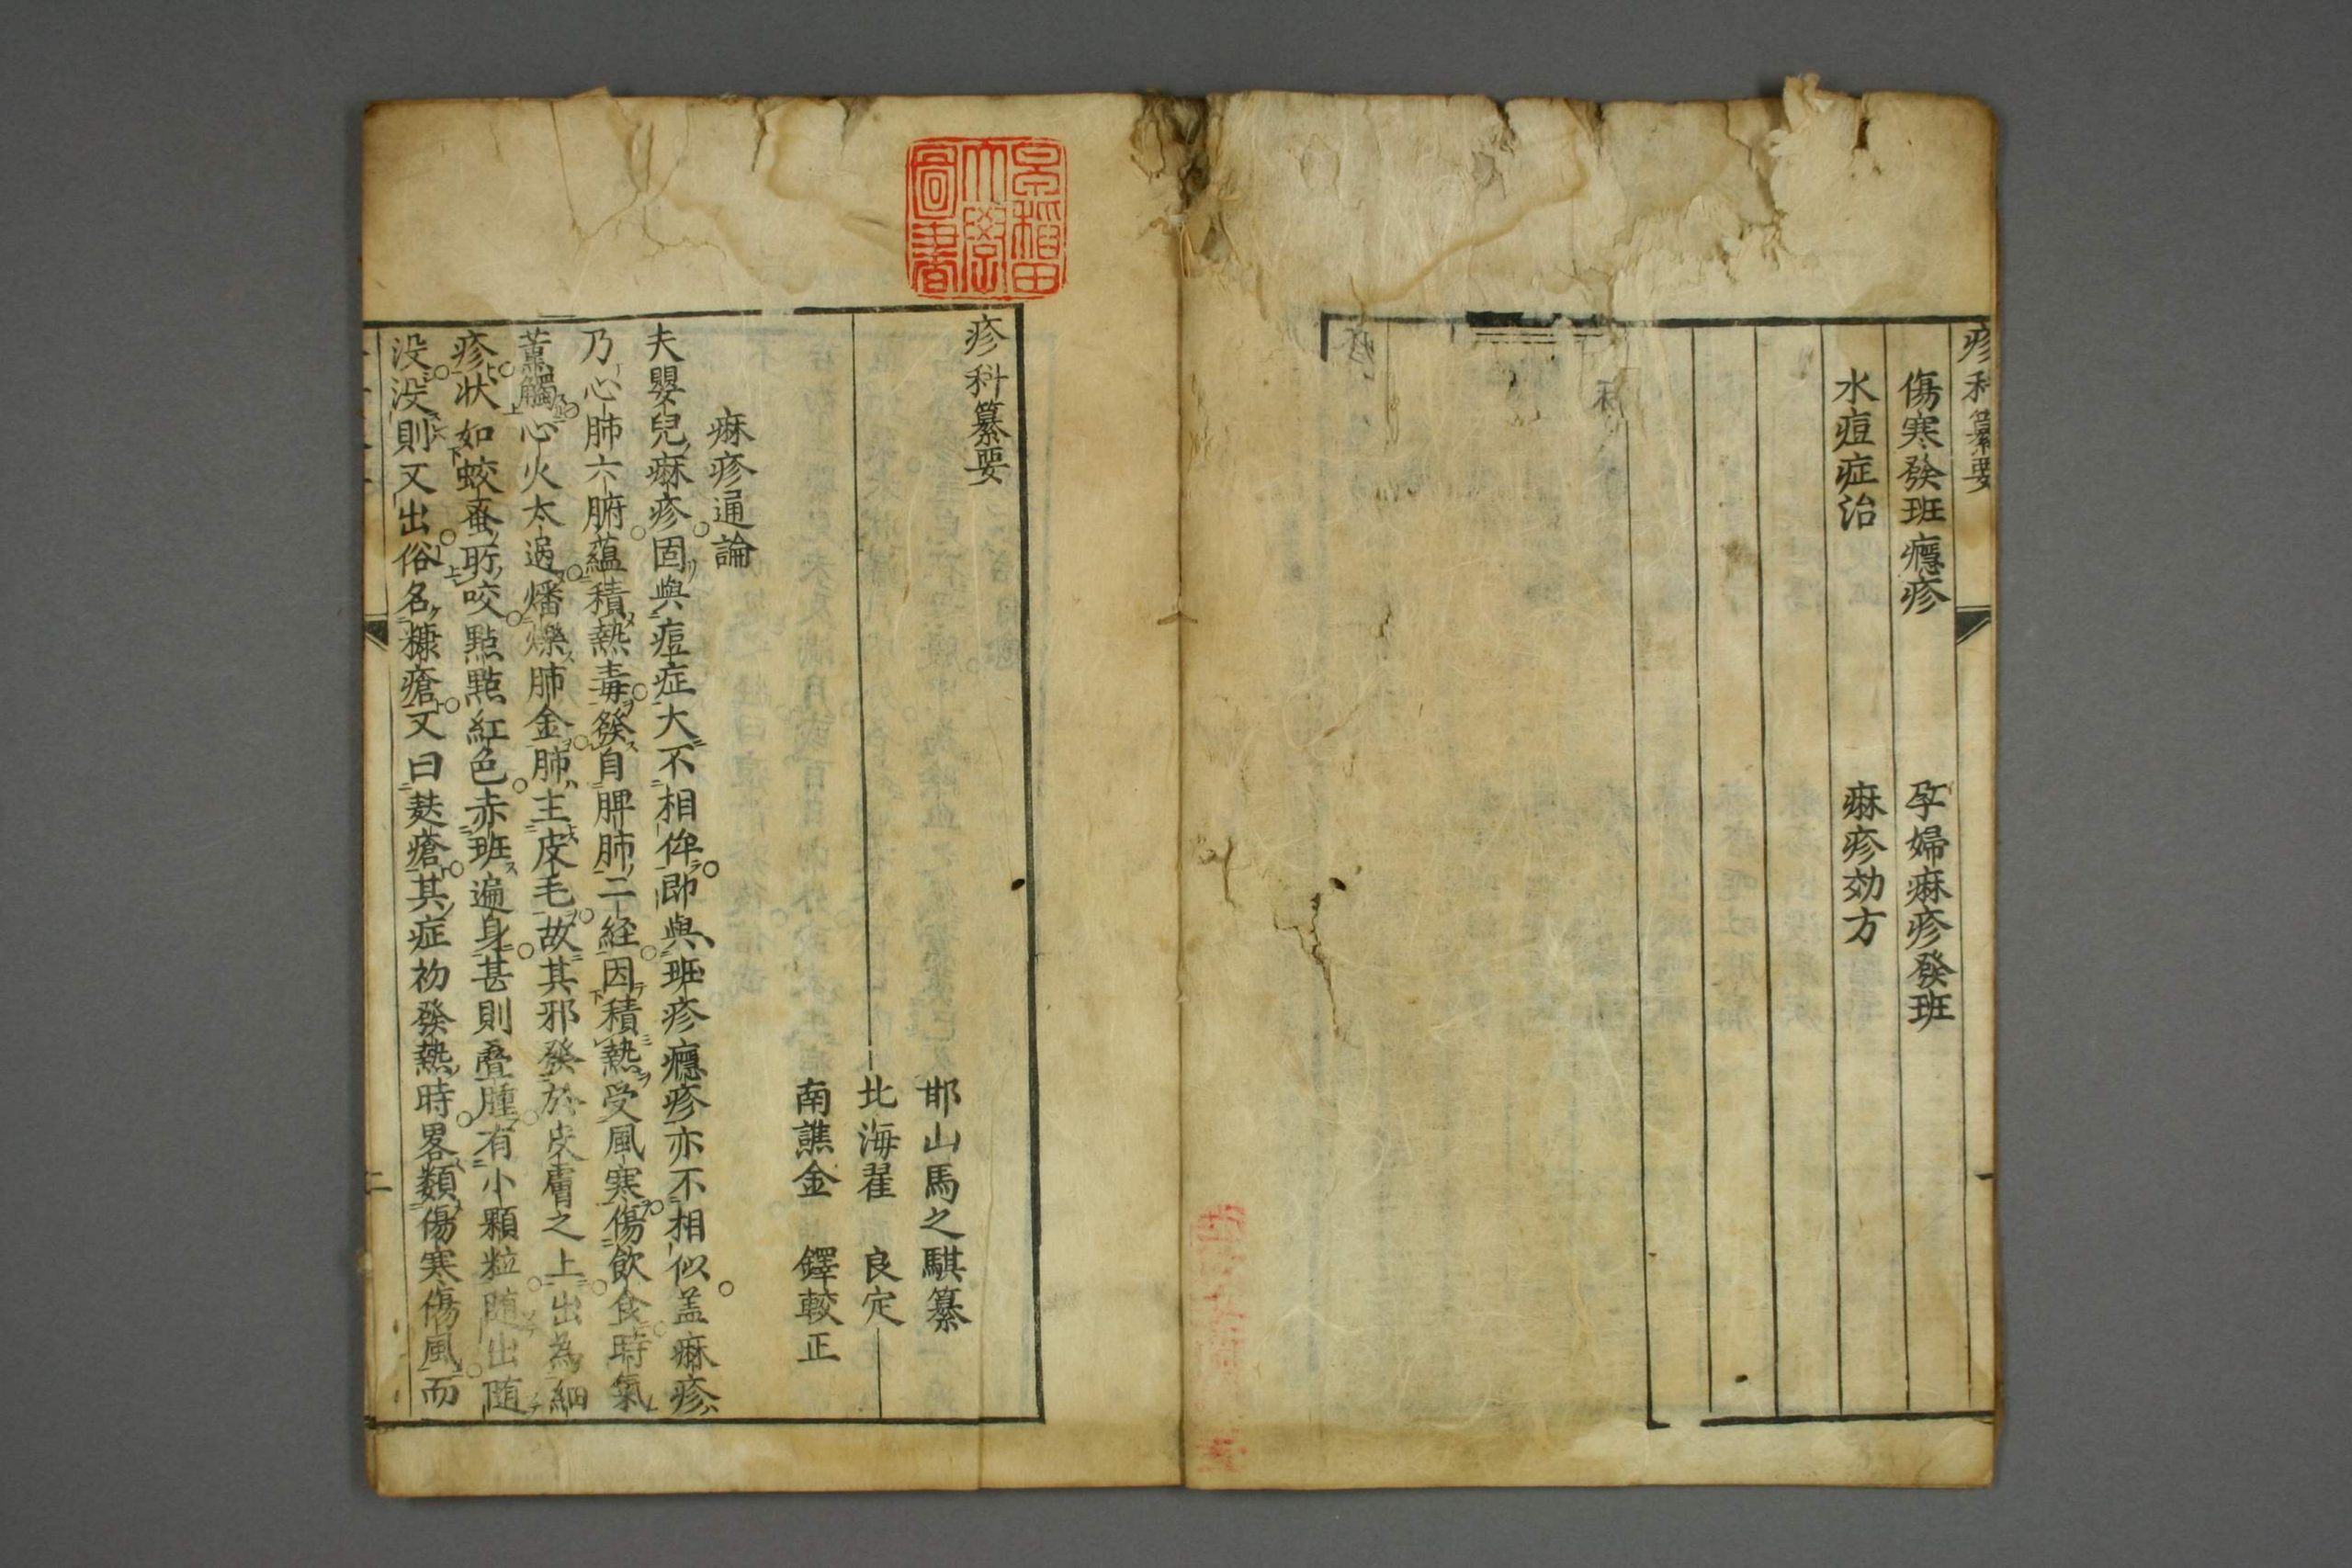 疹科纂要
傷寒發班癮疹　孕婦痳疹發班
水痘症治　痳疹効方
早稲田
大學
圖書
疹科纂要
邯山馬之騏纂
北海翟　良定
南譙金　鐸較正
痳疹通論
夫嬰兒痳疹固與痘症大不相侔即與班疹癮疹亦不相似盖痳疹
乃心肺六腑蘊積熱毒發自脾肺二経因積熱受風寒傷飲食時氣
薰觸心火太過燔爍肺金肺主皮毛故其邪發於皮膚之上出為細
疹状如蛟蚤所咬點點紅色赤班遍身甚則疊腫有小顆粒随出随
没没則又出俗名糠瘡又曰麩瘡其症初發熱時畧類傷寒傷風而
二